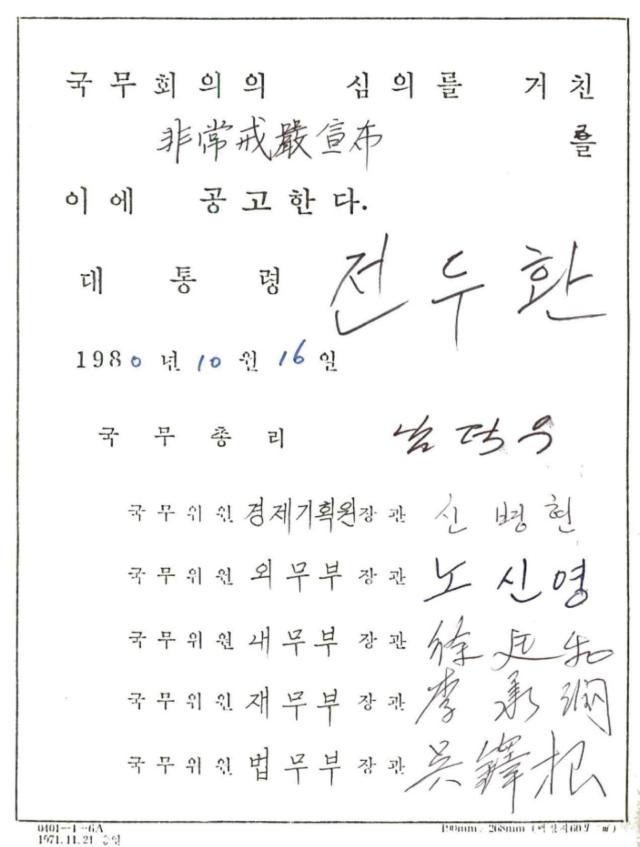 국무회의의 심의를 거친
非常戒嚴宣布 를
이에 공고한다.
대 통 령 전 두 환
1980년 10월 16일
국 무 총 리 남 덕 우
국무위원 경제기획원장관 신 병 현
국무위원 외무부 장관 노 신 영
국무위원 내무부 장관 徐 廷 和
국무위원 재무부 장관 李 承 潤
국무위원 법무부 장관 吳 鐸 根
0401-1-6A
1971.11.21 승인
190mm 268mm